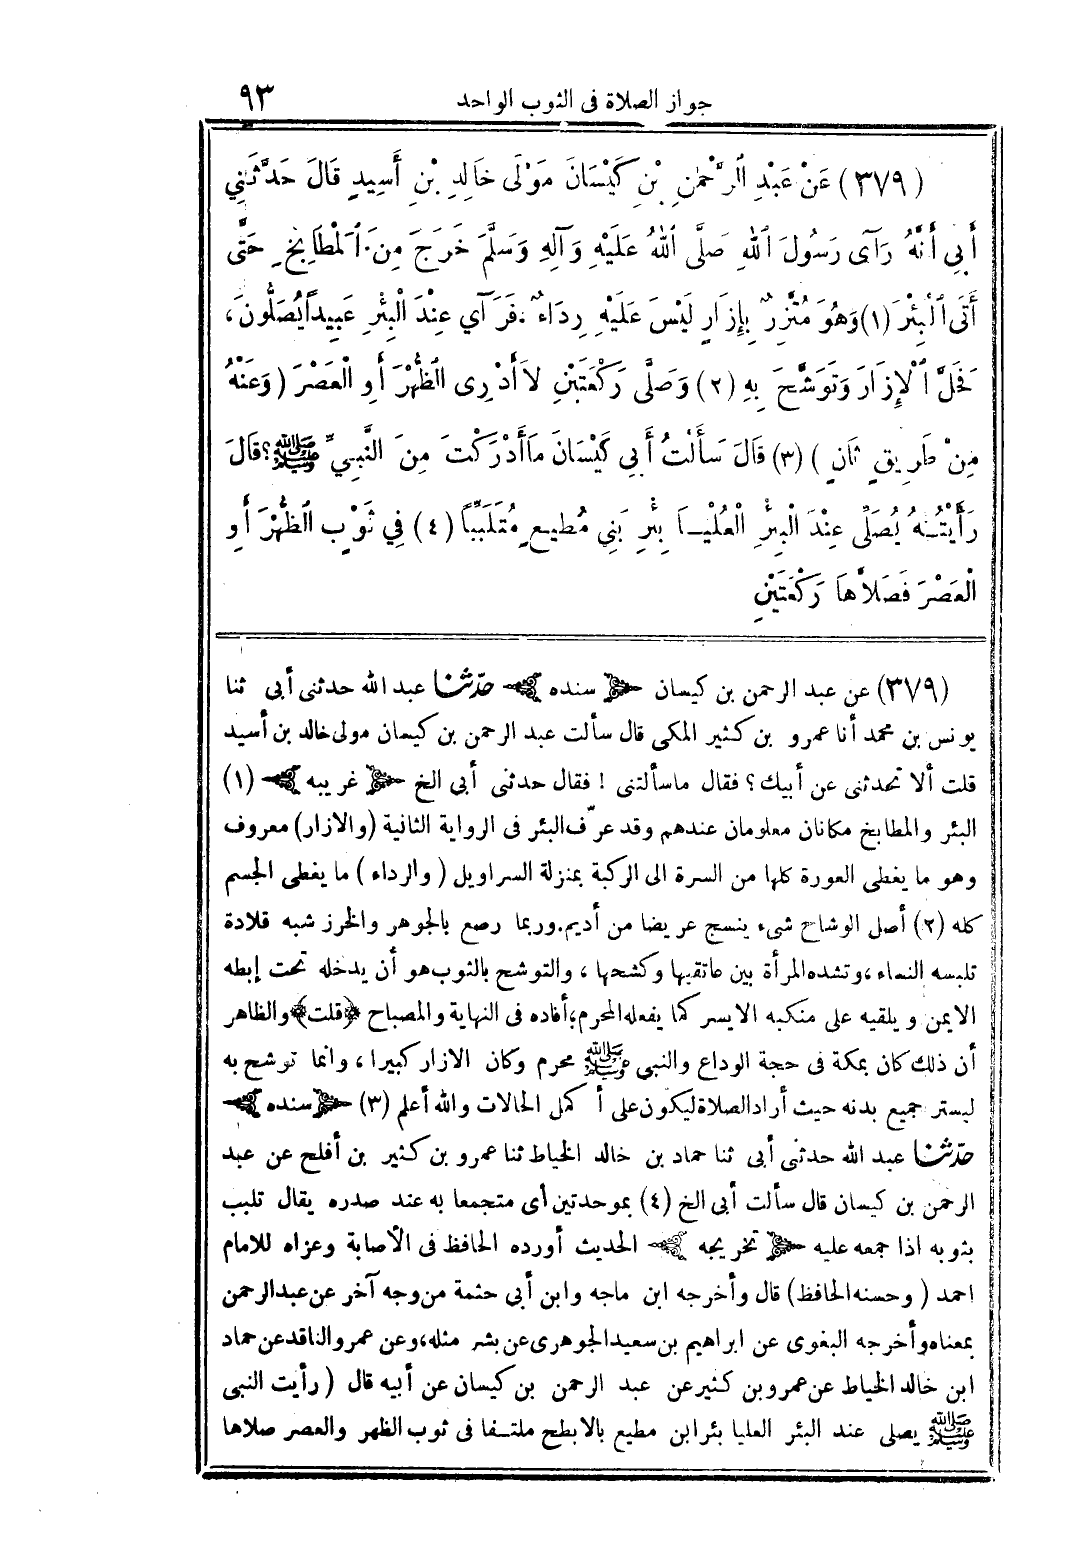 جواز الصلاة فى الثوب الواحد ٩٣
(٣٧٩) عَنْ عَبْدِ الرَّحْمٰنِ بْنِ كَيْسَانَ مَوْلَى خَالِدِ بْنِ أَسِيدٍ قَالَ حَدَّثَنِي
أَبِي أَنَّهُ رَآى رَسُولَ اللهِ صَلَّى اللهُ عَلَيْهِ وَآلِهِ وَسَلَّمَ خَرَجَ مِنَ الْمَطَابِخِ حَتَّى
أَتَى الْبِئْرَ (١) وَهُوَ مُتَّزِرٌ بِإِزَارٍ لَيْسَ عَلَيْهِ رِدَاءٌ، فَرَآي عِنْدَ الْبِئْرِ عَبِيداً يُصَلُّونَ،
فَحَلَّ الْإِزَارَ وَتَوَشَّحَ بِهِ (٢) وَصَلَّى رَكْعَتَيْنِ لاَ أَدْرِى الظُّهْرَ أَوِ الْعَصْرَ (وَعَنْهُ
مِنْ طَرِيقٍ ثَانٍ) (٣) قَالَ سَأَلْتُ أَبِي كَيْسَانَ مَا أَدْرَكْتَ مِنَ النَّبِيِّ ﷺ؟ قَالَ
رَأَيْتُهُ يُصَلِّى عِنْدَ الْبِئْرِ الْعُلْيَا بِئْرِ بَنِي مُطِيعٍ مُتَلَبِّبًا (٤) فِي ثَوْبٍ الظُّهْرَ أَوِ
الْعَصْرَ فَصَلاَّهَا رَكْعَتَيْنِ
(٣٧٩) عن عبد الرحمن بن كيسان ﴿ سنده ﴾ حدّثنا عبد الله حدثنى أبى ثنا
يونس بن محمد أنا عمرو بن كثير المكى قال سألت عبد الرحمن بن كيسان مولى خالد بن أسيد
قلت ألا تحدثنى عن أبيك؟ فقال ماسألتنى ! فقال حدثنى أبى الخ ﴿ غريبه ﴾ (١)
البئر والمطابخ مكانان معلومان عندهم وقد عرّف البئر فى الرواية الثانية (والازار) معروف
وهو ما يغطى العورة كلها من السرة الى الركبة بمنزلة السراويل (والرداء) ما يغطى الجسم
كله (٢) أصل الوشاح شىء ينسج عريضا من أديم، وربما رصع بالجوهر والخرز شبه قلادة
تلبسه النساء، وتشده المرأة بين عاتقيها وكشحها، والتوشح بالثوب هو أن يدخله تحت إبطه
الايمن ويلقيه على منكبه الايسر كما يفعله المحرم؛ أفاده فى النهاية والمصباح ﴿قلت﴾ والظاهر
أن ذلك كان بمكة فى حجة الوداع والنبي ﷺ محرم وكان الازار كبيرا، وانما توشح به
ليستر جميع بدنه حيث أراد الصلاة ليكون على أكمل الحالات والله أعلم (٣) ﴿ سنده ﴾
حدّثنا عبد الله حدثنى أبى ثنا حماد بن خالد الخياط ثنا عمرو بن كثير بن أفلح عن عبد
الرحمن بن كيسان قال سألت أبى الخ (٤) بموحدتين أى متجمعا به عند صدره يقال تلبب
بثوبه اذا جمعه عليه ﴿ تخريجه ﴾ الحديث أورده الحافظ فى الأصابة وعزاه للامام
احمد (وحسنه الحافظ) قال وأخرجه ابن ماجه وابن أبى حثمة من وجه آخر عن عبدالرحمن
بمعناه وأخرجه البغوى عن ابراهيم بن سعيد الجوهرى عن بشر مثله، وعن عمرو الناقد عن حماد
ابن خالد الخياط عن عمرو بن كثير عن عبد الرحمن بن كيسان عن أبيه قال (رأيت النبى
ﷺ يصلى عند البئر العليا بئر ابن مطيع بالابطح ملتفا فى ثوب الظهر والعصر صلاها